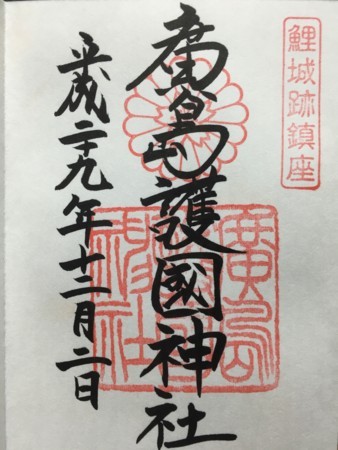 鯉城跡鎮座
廣島護國神社
平成二十九年十二月二日
廣島護國神社